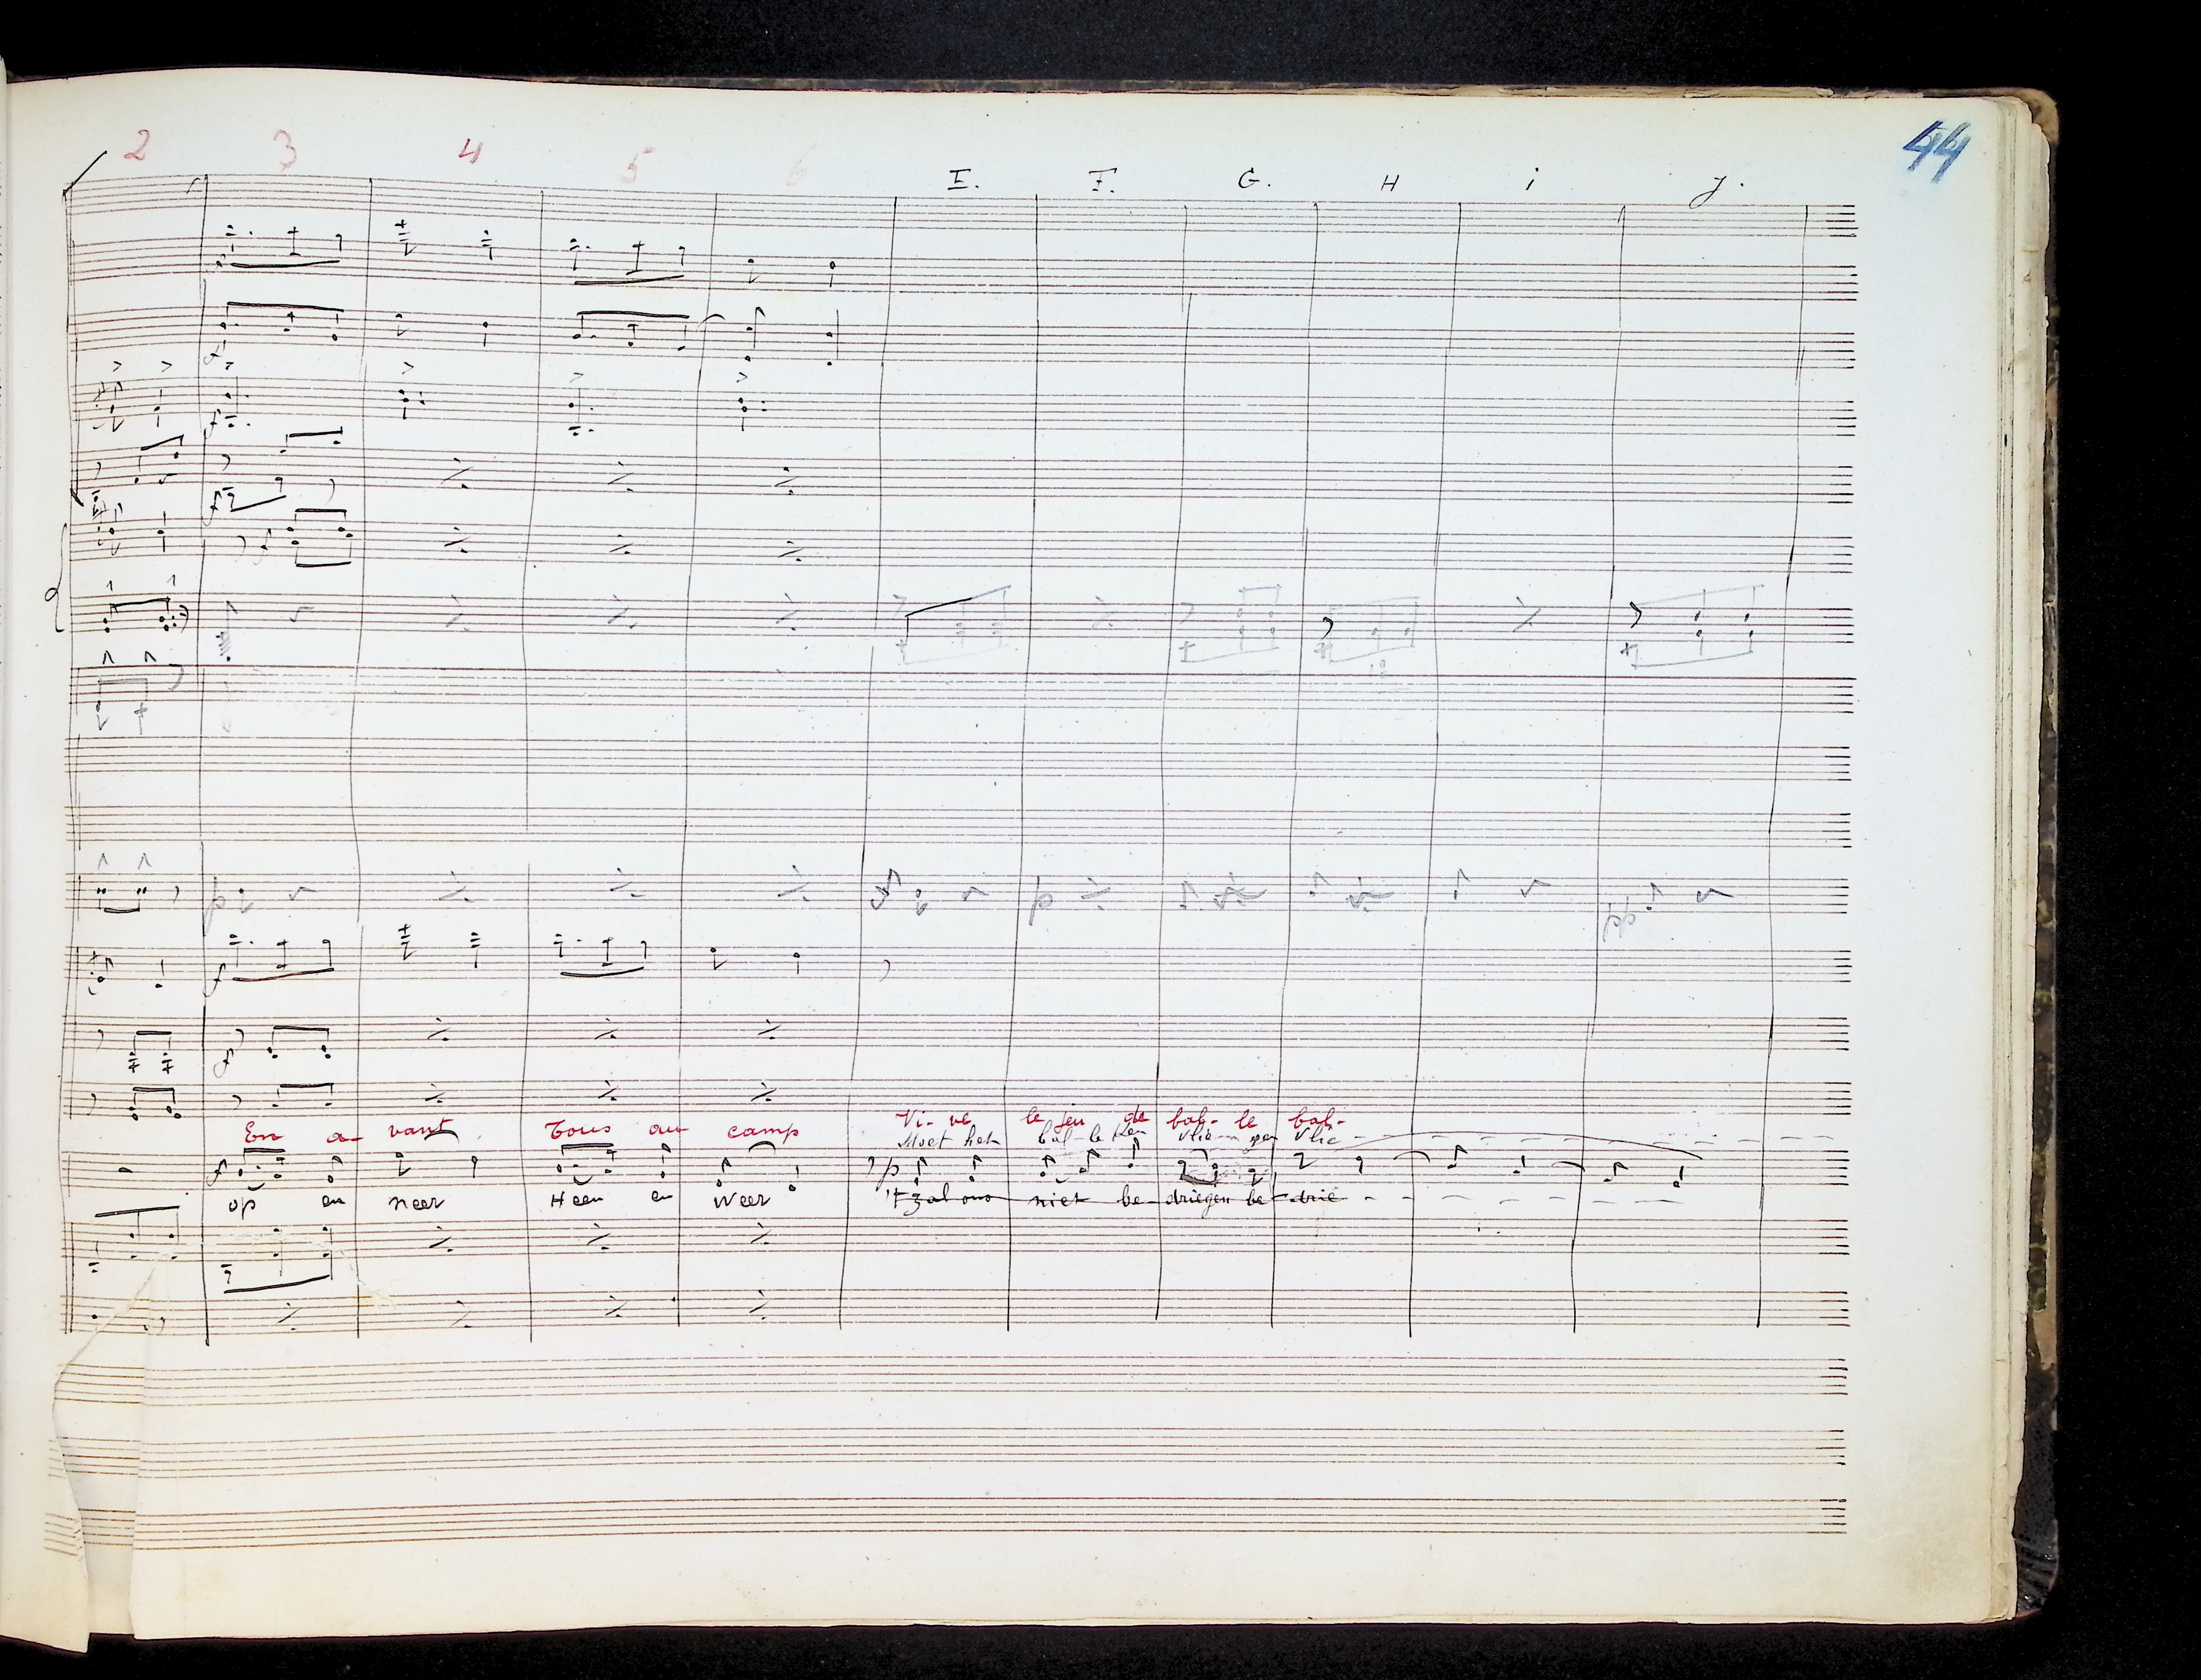 44
2 3 4 5 6 E. F. G. H i j.
En a- vant Tous au camp Vi- ve le jeu de bal- le bal-
Moet het bal-le ken vlie- gen vlie
op en neer Heen en weer 't zal ons niet be- driegen be- drie